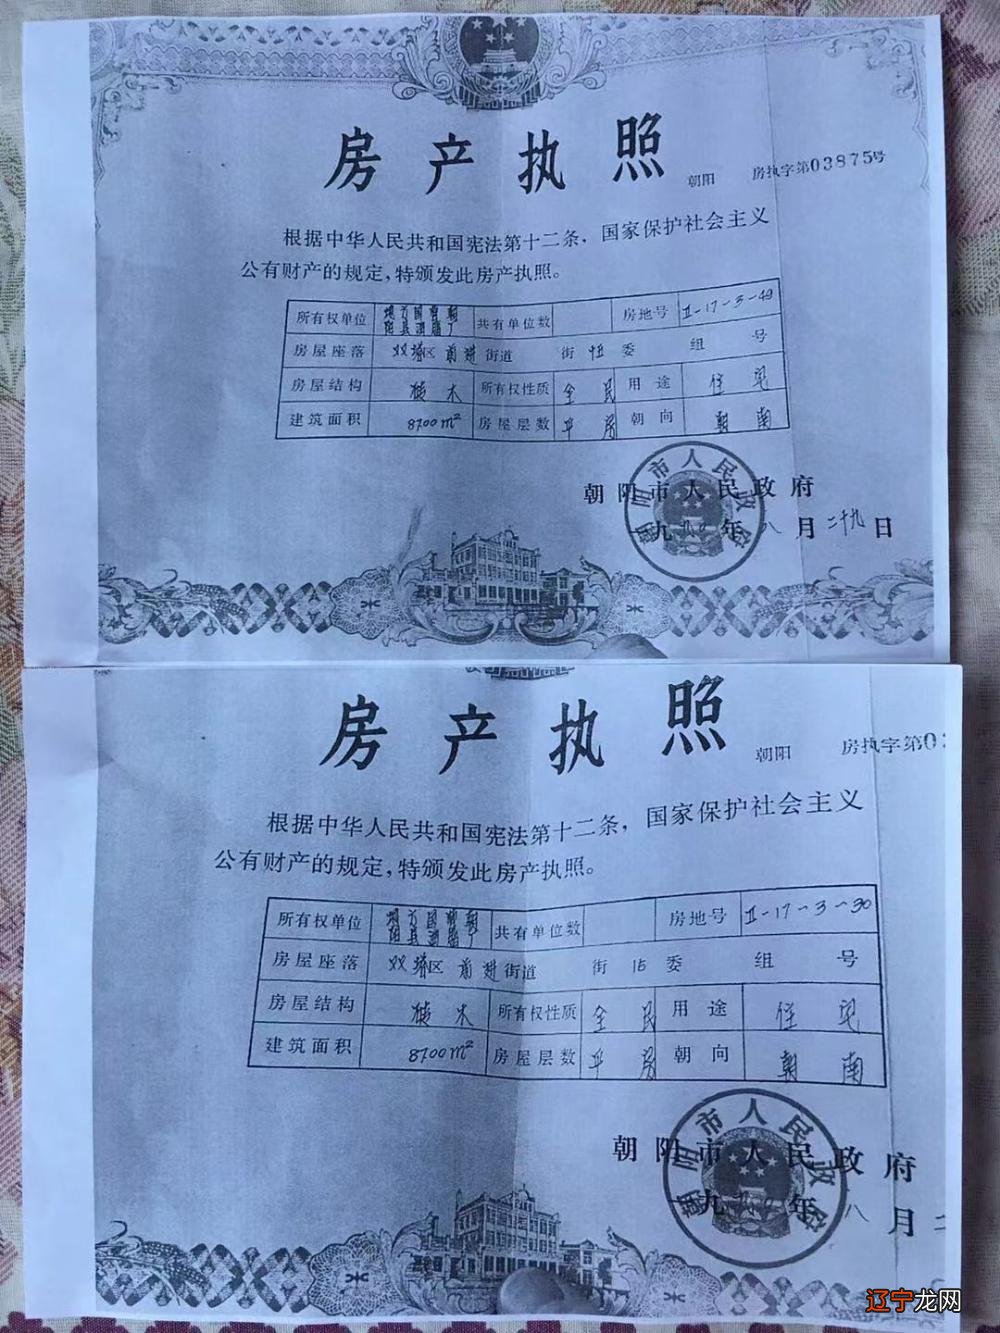 房产执照
朝阳 房执字第03875号
根据中华人民共和国宪法第十二条，国家保护社会主义
公有财产的规定，特颁发此房产执照。
所有权单位 地方国营朝阳县 共有单位数 房地号 II-17-3-49
房屋座落 双塔区 前进 街道 街 委 组 号
房屋结构 木 所有权性质 全民 用途 住宅
建筑面积 8700m² 房屋层数 平房 朝向 朝南
朝阳市人民政府
九 年八月二十九日
房产执照
朝阳 房执字第03
根据中华人民共和国宪法第十二条，国家保护社会主义
公有财产的规定，特颁发此房产执照。
所有权单位 地方国营朝阳县 共有单位数 房地号 II-17-3-30
房屋座落 双塔区 前进 街道 街 15 委 组 号
房屋结构 木 所有权性质 全民 用途 住宅
建筑面积 8700m² 房屋层数 平房 朝向 朝南
朝阳市人民政府
九 年八月二
辽宁龙网